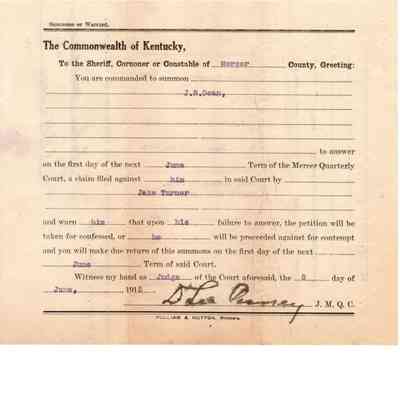 Summons or Warrant.
The Commonwealth of Kentucky,
To the Sheriff, Cornoner or Constable of Mercer County, Greeting:
You are commanded to summon
J.S.Dean,
to answer
on the first day of the next June Term of the Mercer Quarterly
Court, a claim filed against him in said Court by
Jake Turner
and warn him that upon his failure to answer, the petition will be
taken for confessed, or he will be proceeded against for contempt
and you will make due return of this summons on the first day of the next
June Term of said Court.
Witness my hand as Judge of the Court aforesaid, the day of
June, 191
J. M. Q. C.
PULLIAM & HUTTON, Printers.